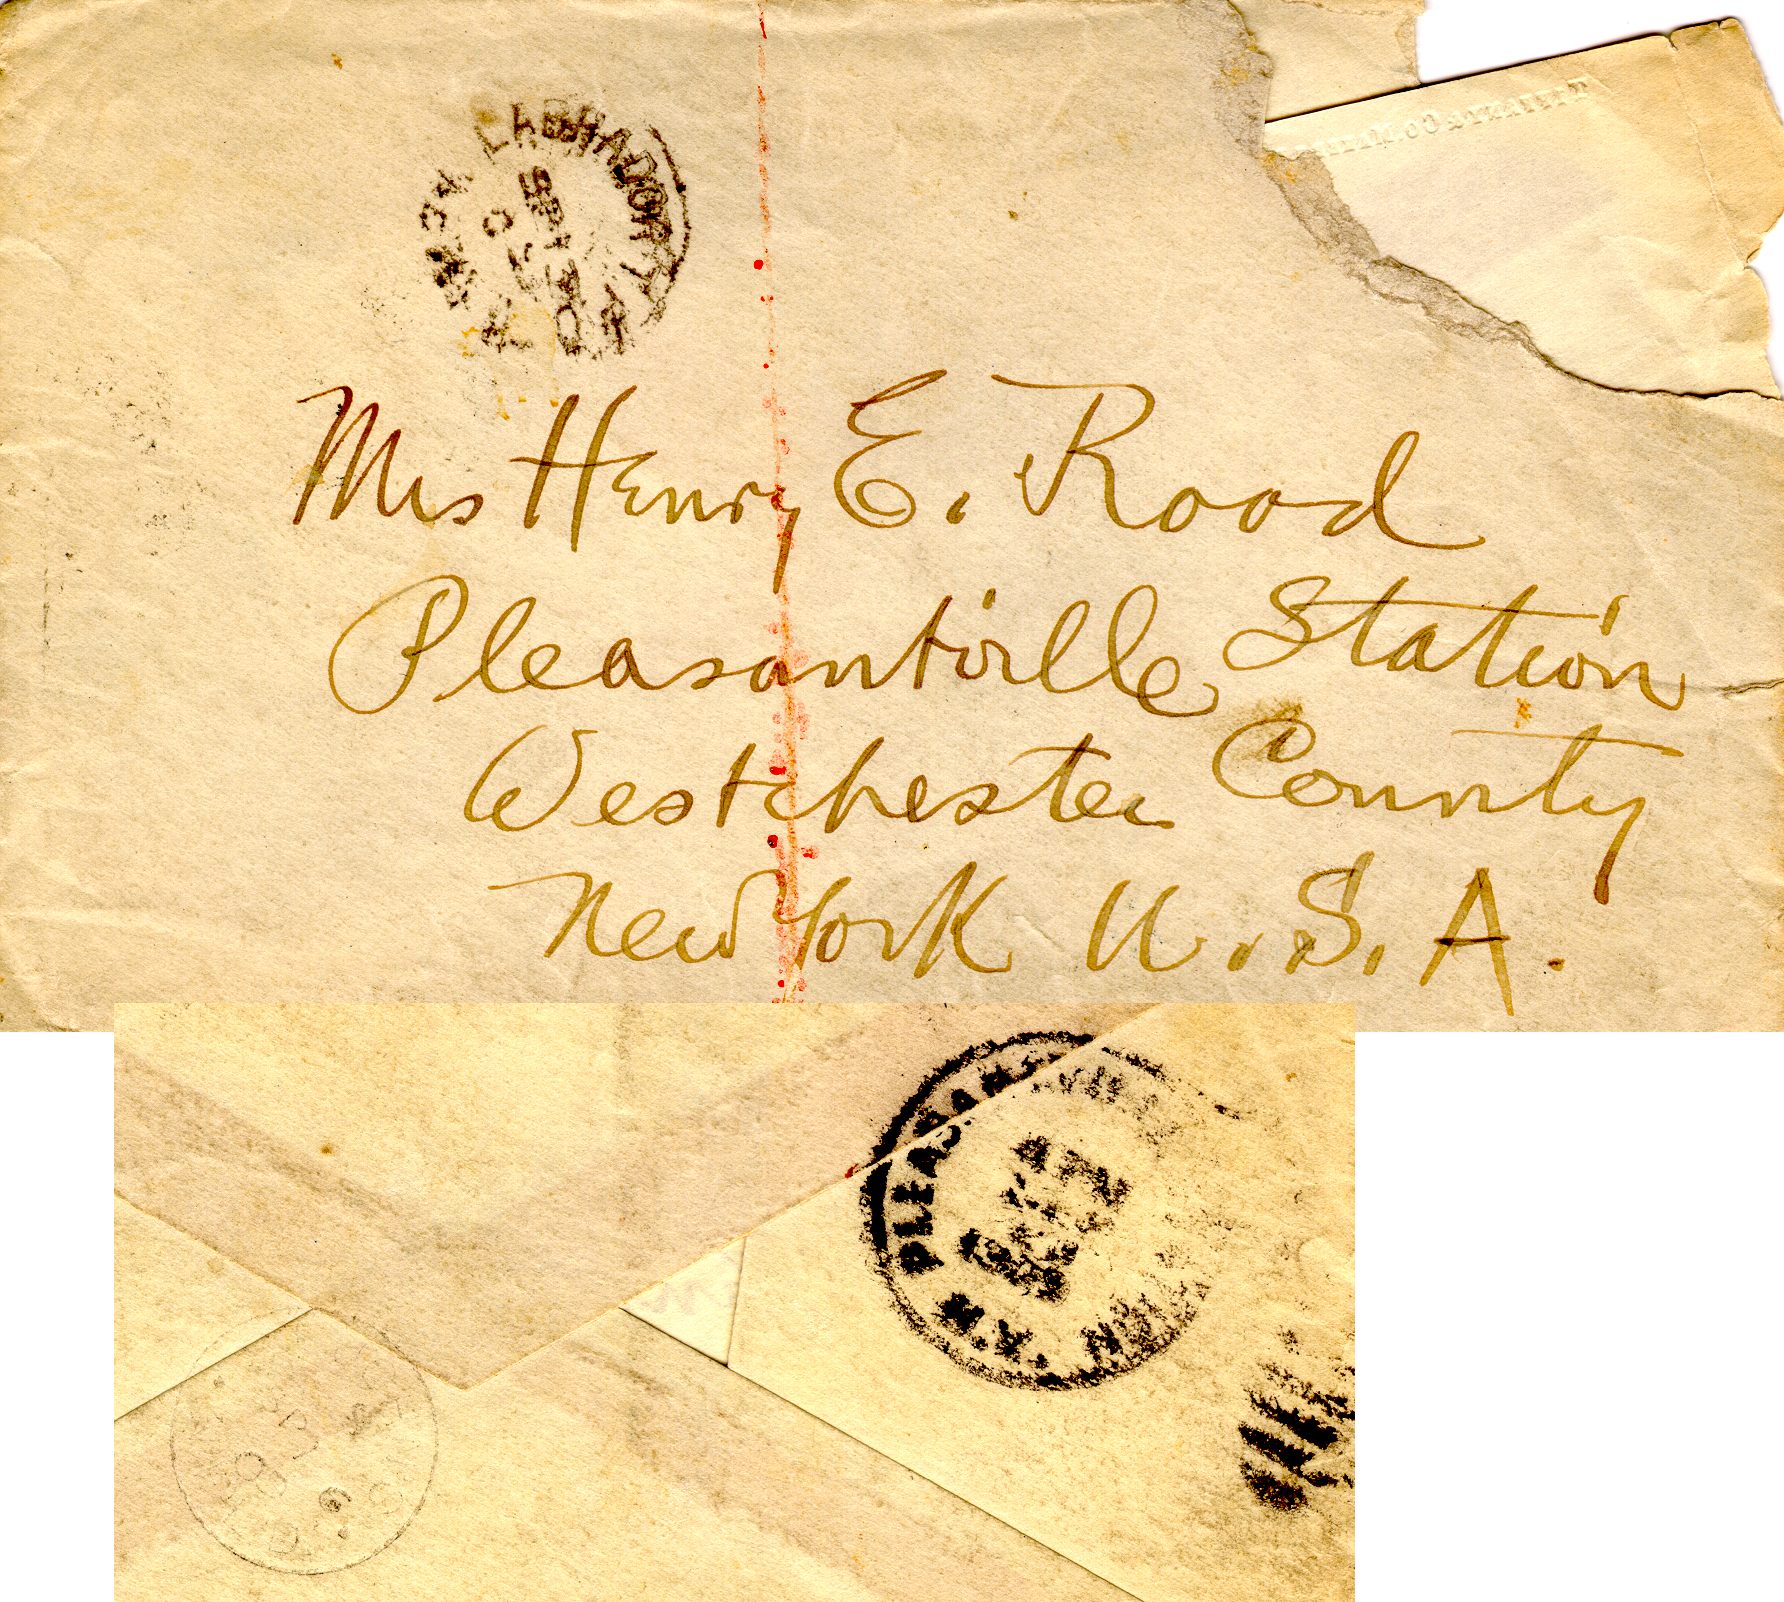 LABRADOR
SEP
Mrs Henry E. Rood
Pleasantville Station
Westchester County
New York U.S.A.
PLEASANTVILLE
N.Y.